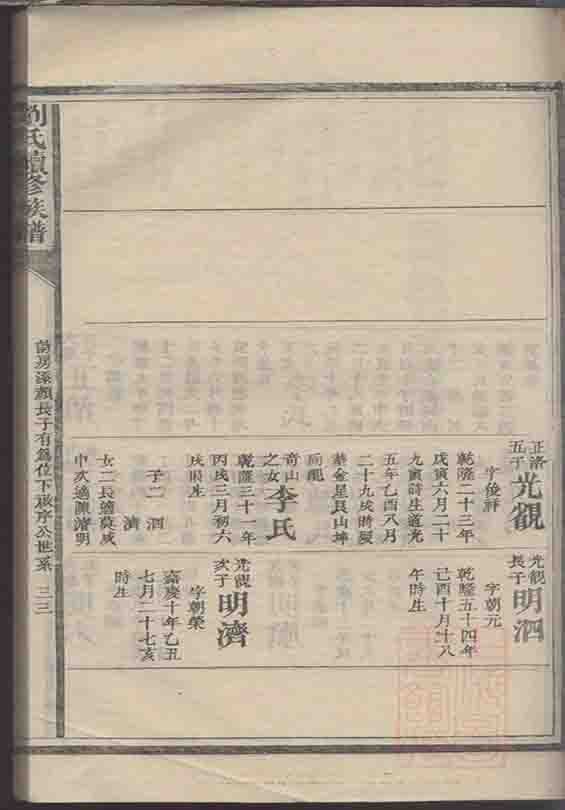 正洛
五子
光觀
字俊祥
乾隆二十三年
戊寅六月二十
九寅時生道光
五年乙酉八月
二十九戌時歿
葬金星艮山坤
向
奇山
之女
李氏
乾隆三十一年
丙戌三月初六
戌時生
子二泗
濟
女二長適莫成
中次適陳清明
光觀
長子
明泗
字朝元
乾隆五十四年
己酉十月十八
午時生
光觀
次子
明濟
字朝榮
嘉慶十年乙丑
七月二十七亥
時生
劉氏續修族譜
房添顏長子有為位下祿序公世系
三三